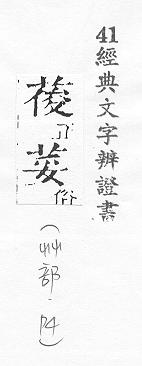 41經典文字辨證書
葰正荽俗
(艸部.